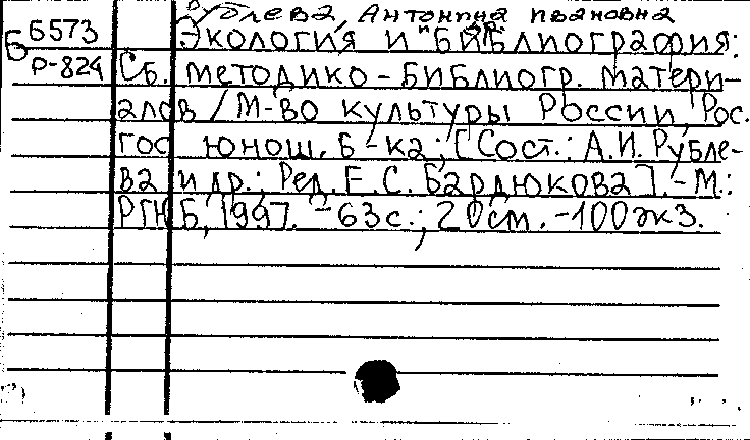 Рублева, Антонина Ивановна
и др.
Б 6573 Экология и библиография:
Р-824 Сб. методико-библиогр. матери-
алов / М-во культуры России, Рос.
гос юнош. б-ка; [Сост.: А.И. Рубле-
ва и др.; Ред. Е.С. Бардюкова]. - М.:
РГЮБ, 1997. - 63 с.; 20 см. - 100 экз.